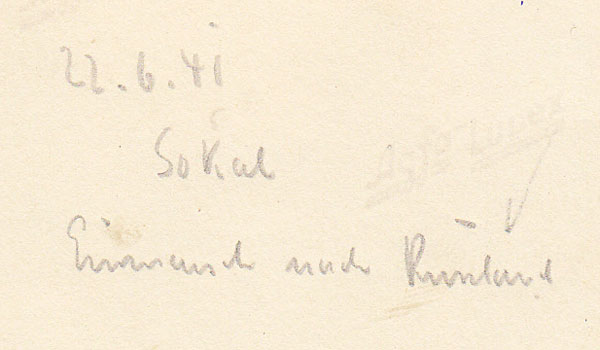 22.6.41
Sokal
Einmarsch nach Russland